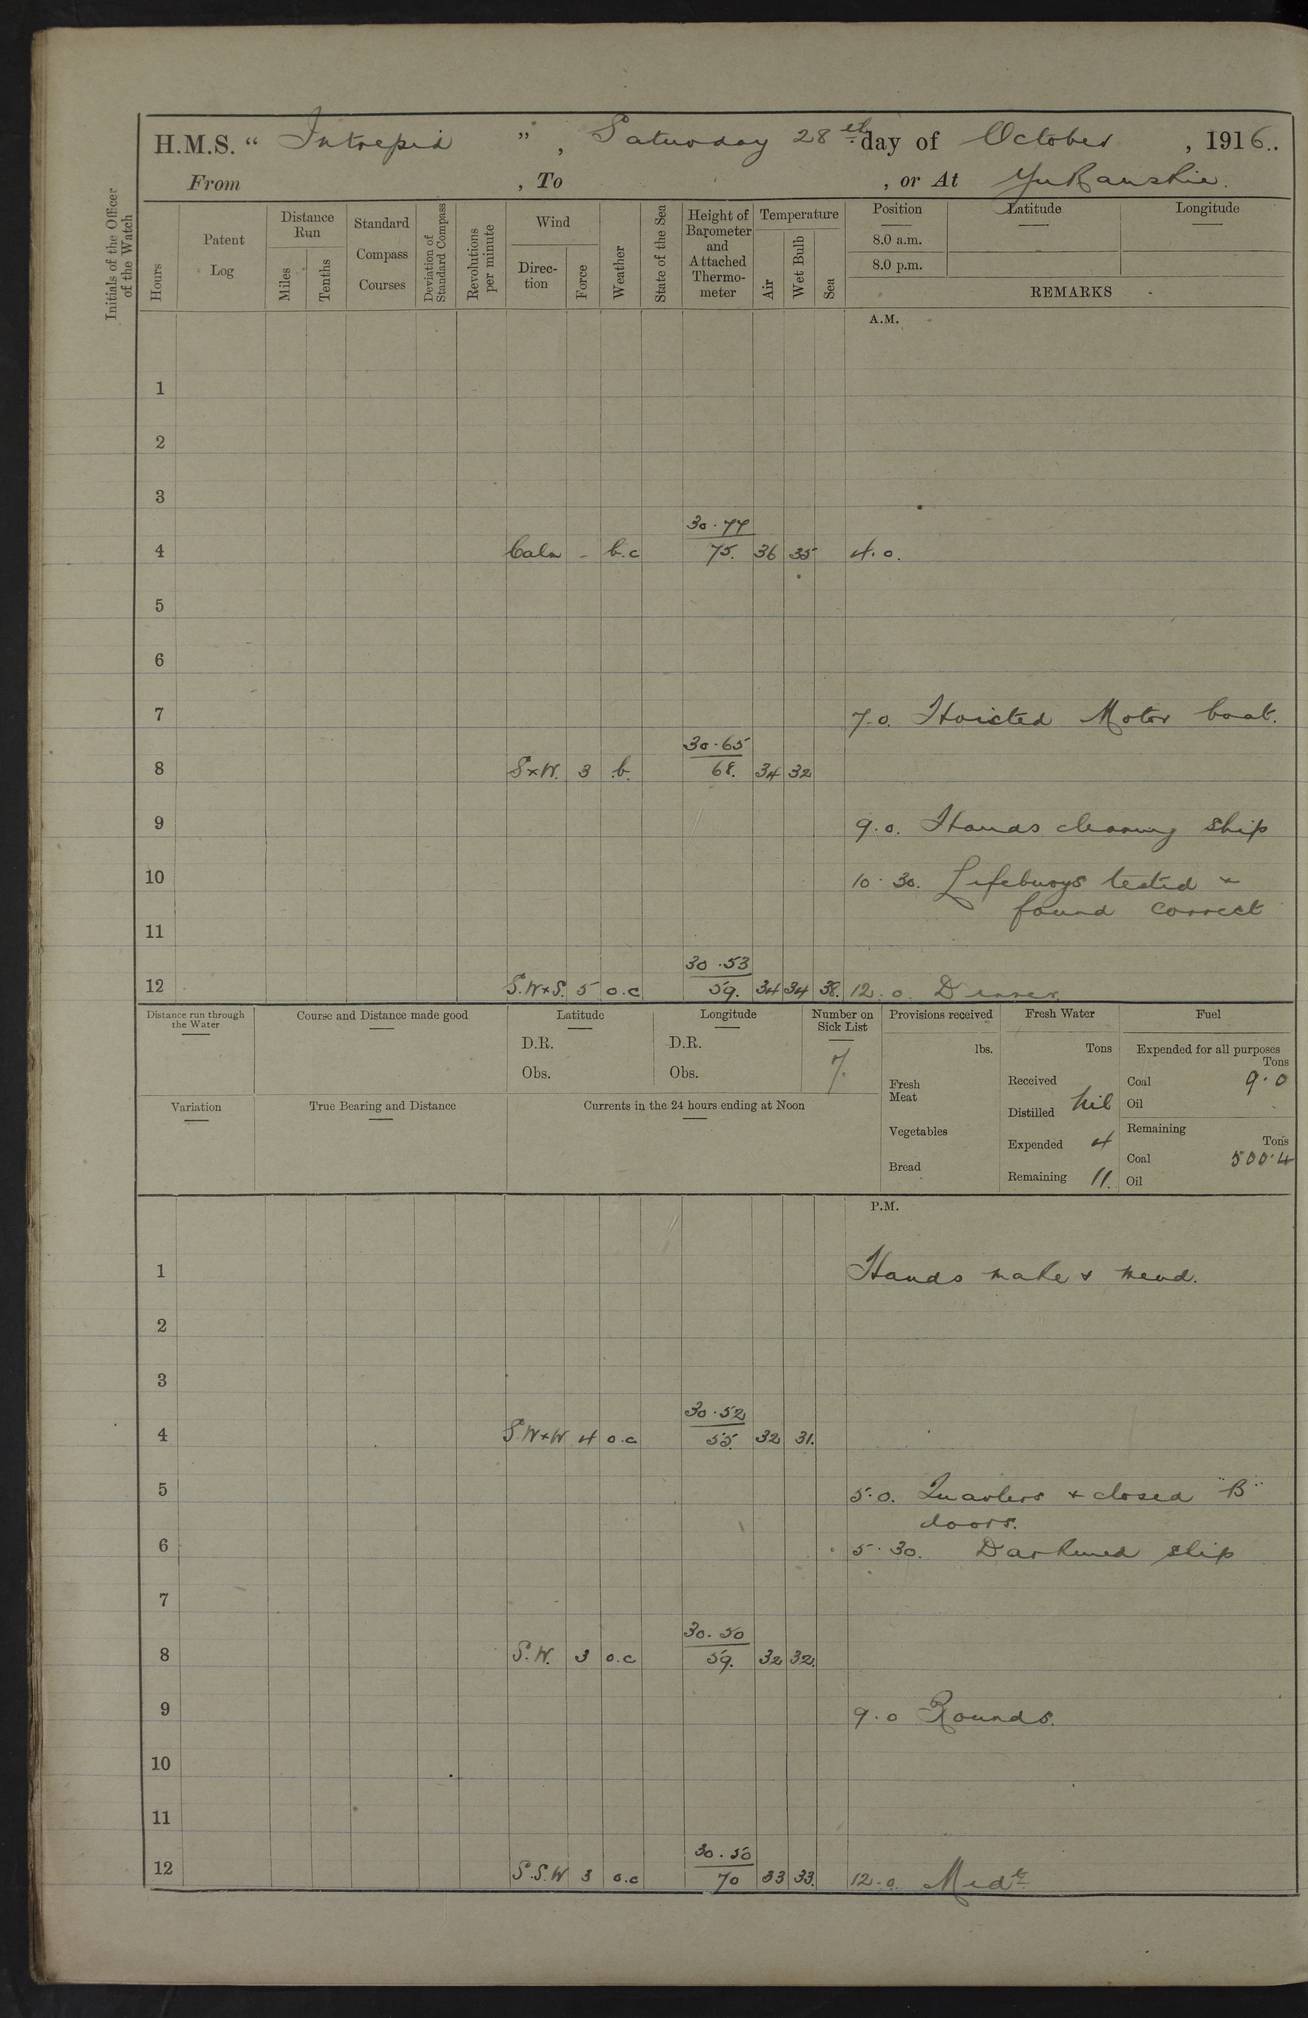 H.M.S. " Intrepid ", Saturday 28th day of October, 1916.
From , To , or At Yukanskie.
Initials of the Officer of the Watch
Hours
Patent Log
Distance Run
Miles
Tenths
Standard Compass Courses
Deviation of Standard Compass
Revolutions per minute
Wind
Direc-tion
Force
Weather
State of the Sea
Height of Barometer and Attached Thermo-meter
Temperature
Air
Wet Bulb
Sea
Position Latitude Longitude
8.0 a.m.
8.0 p.m.
REMARKS
A.M.
1
2
3
30.77
4 Calm - b.c 75. 36 35 4.0.
5
6
7 7.0. Hoisted Motor boat.
30.65
8 S×W. 3 b. 68. 34 32
9 9.0. Hands cleaning ship
10 10.30. Lifebuoys tested &
found correct
11
30.53
12 S.W×S. 5 o.c 59. 34 34 38. 12.0. Dinner
Distance run through the Water
Course and Distance made good
Latitude
D.R.
Obs.
Longitude
D.R.
Obs.
Number on Sick List
7.
Variation
True Bearing and Distance
Currents in the 24 hours ending at Noon
Provisions received
lbs.
Fresh Meat
Vegetables
Bread
Fresh Water
Tons
Received
Distilled Nil
Expended 4
Remaining 11.
Fuel
Expended for all purposes
Tons
Coal 9.0
Oil
Remaining
Tons
Coal 500.4
Oil
P.M.
1 Hands make & mend.
2
3
30.52
4 S.W×W 4 o.c 55. 32 31.
5 5.0. Quarters & closed "B"
doors.
6 5.30. Darkened ship
7
30.50
8 S.W. 3 o.c 59. 32 32.
9 9.0 Rounds.
10
11
30.50
12 S.S.W 3 o.c 70 33 33. 12.0. Midt